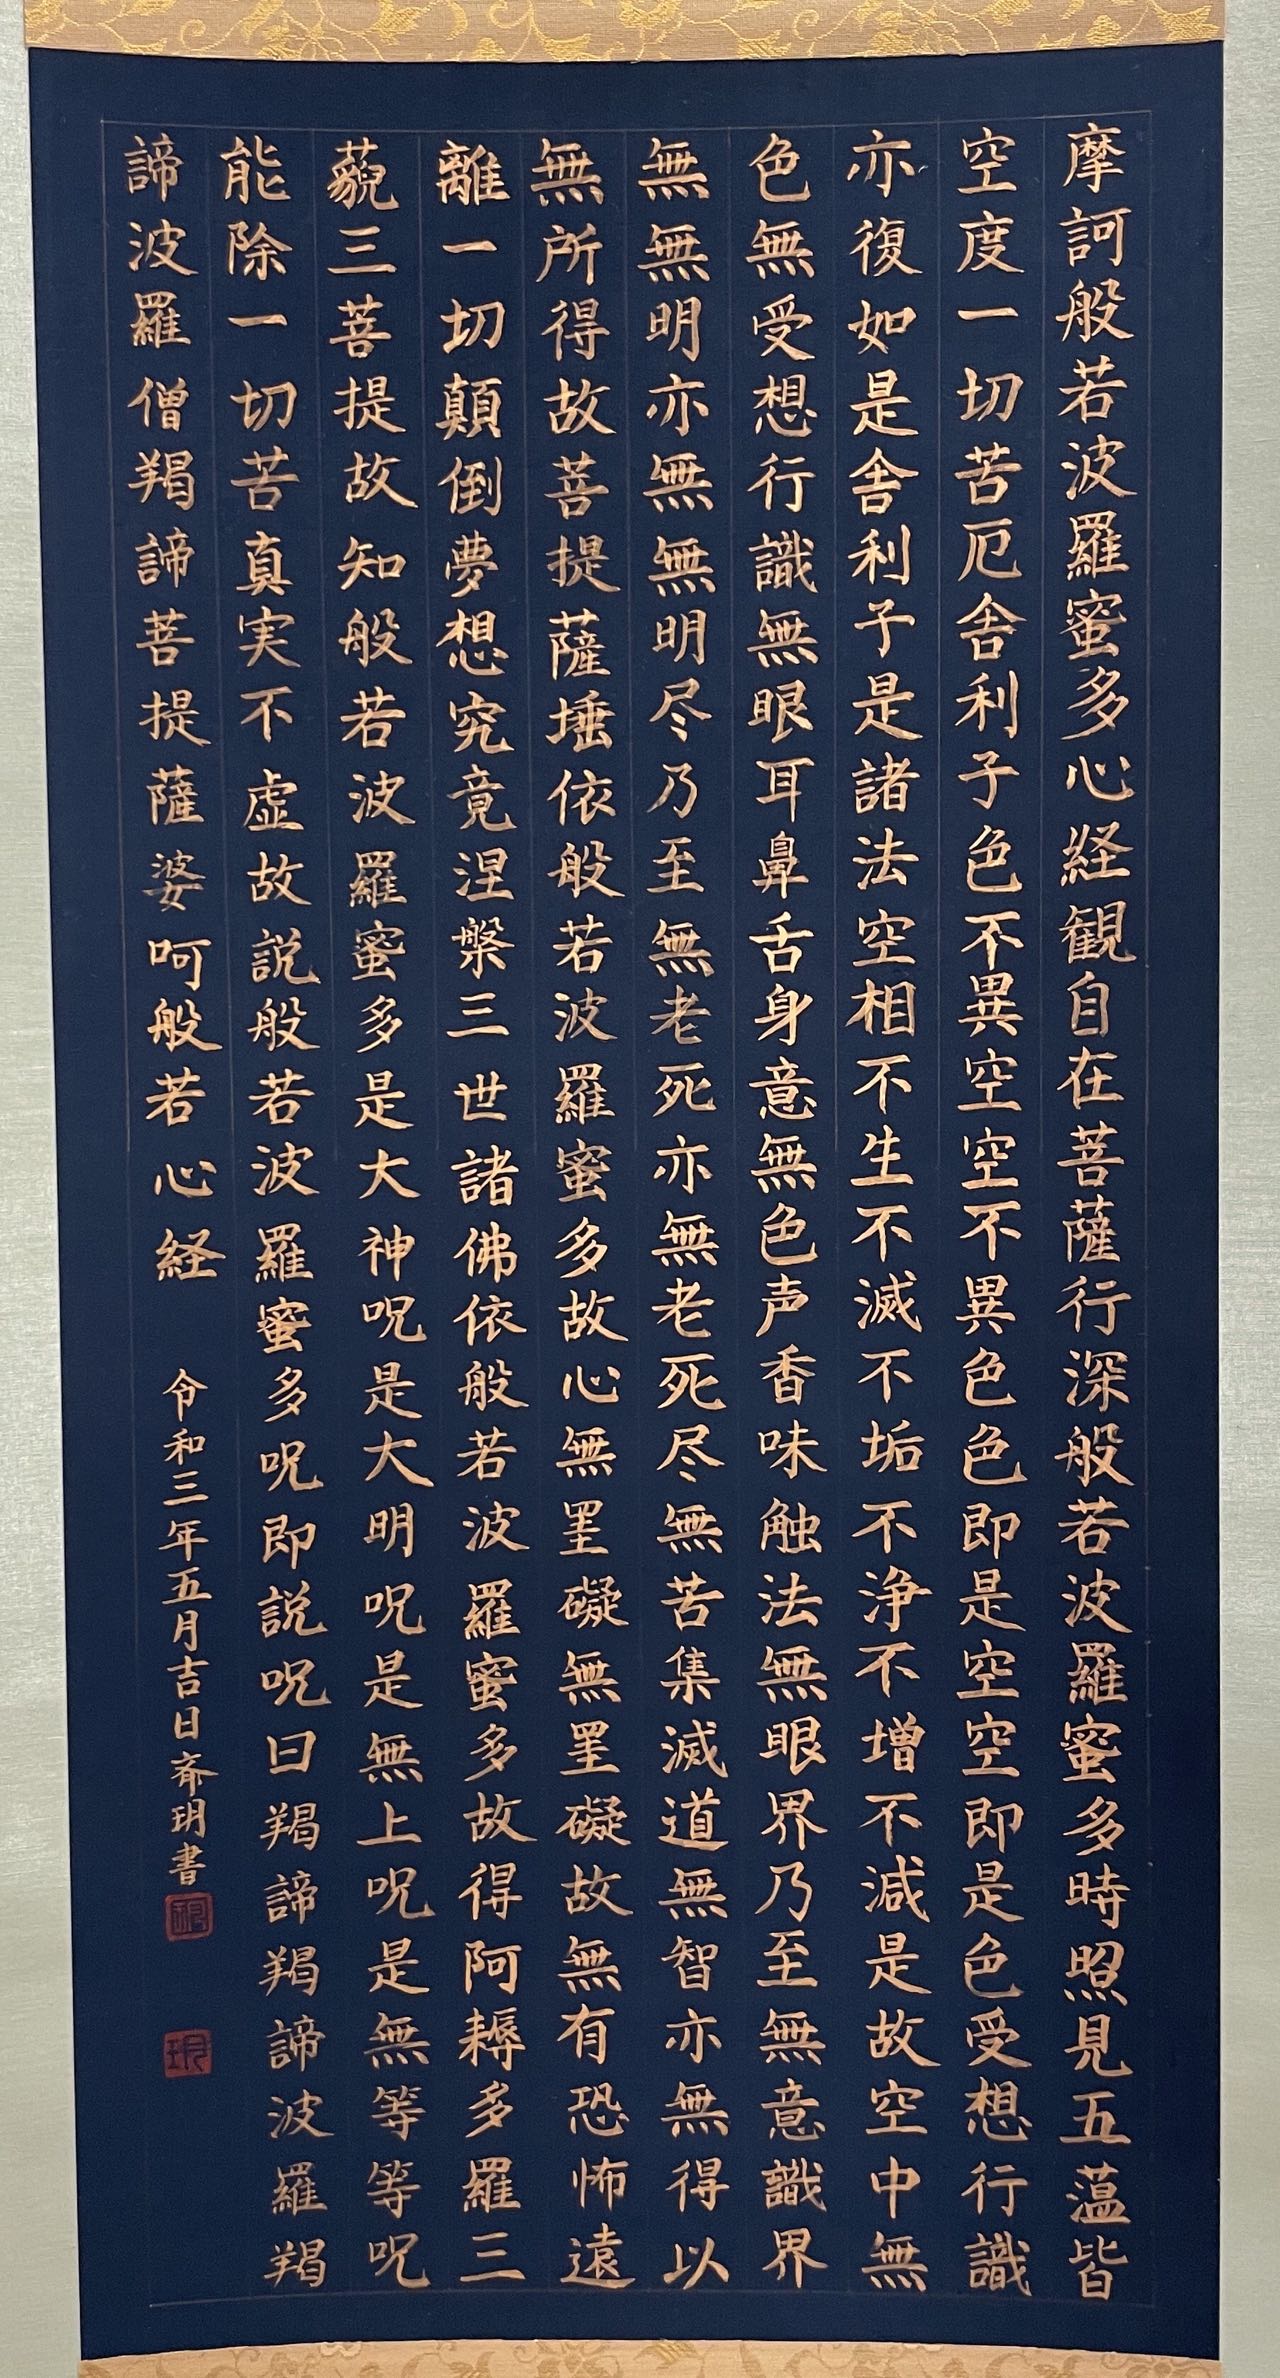 摩訶般若波羅蜜多心経観自在菩薩行深般若波羅蜜多時照見五薀皆
空度一切苦厄舎利子色不異空空不異色色即是空空即是色受想行識
亦復如是舎利子是諸法空相不生不滅不垢不浄不増不減是故空中無
色無受想行識無眼耳鼻舌身意無色声香味触法無眼界乃至無意識界
無無明亦無無明尽乃至無老死亦無老死尽無苦集滅道無智亦無得以
無所得故菩提薩埵依般若波羅蜜多故心無罣礙無罣礙故無有恐怖遠
離一切顛倒夢想究竟涅槃三世諸佛依般若波羅蜜多故得阿耨多羅三
藐三菩提故知般若波羅蜜多是大神呪是大明呪是無上呪是無等等呪
能除一切苦真実不虚故説般若波羅蜜多呪即説呪曰羯諦羯諦波羅羯
諦波羅僧羯諦菩提薩婆呵般若心経 令和三年五月吉日 玥書